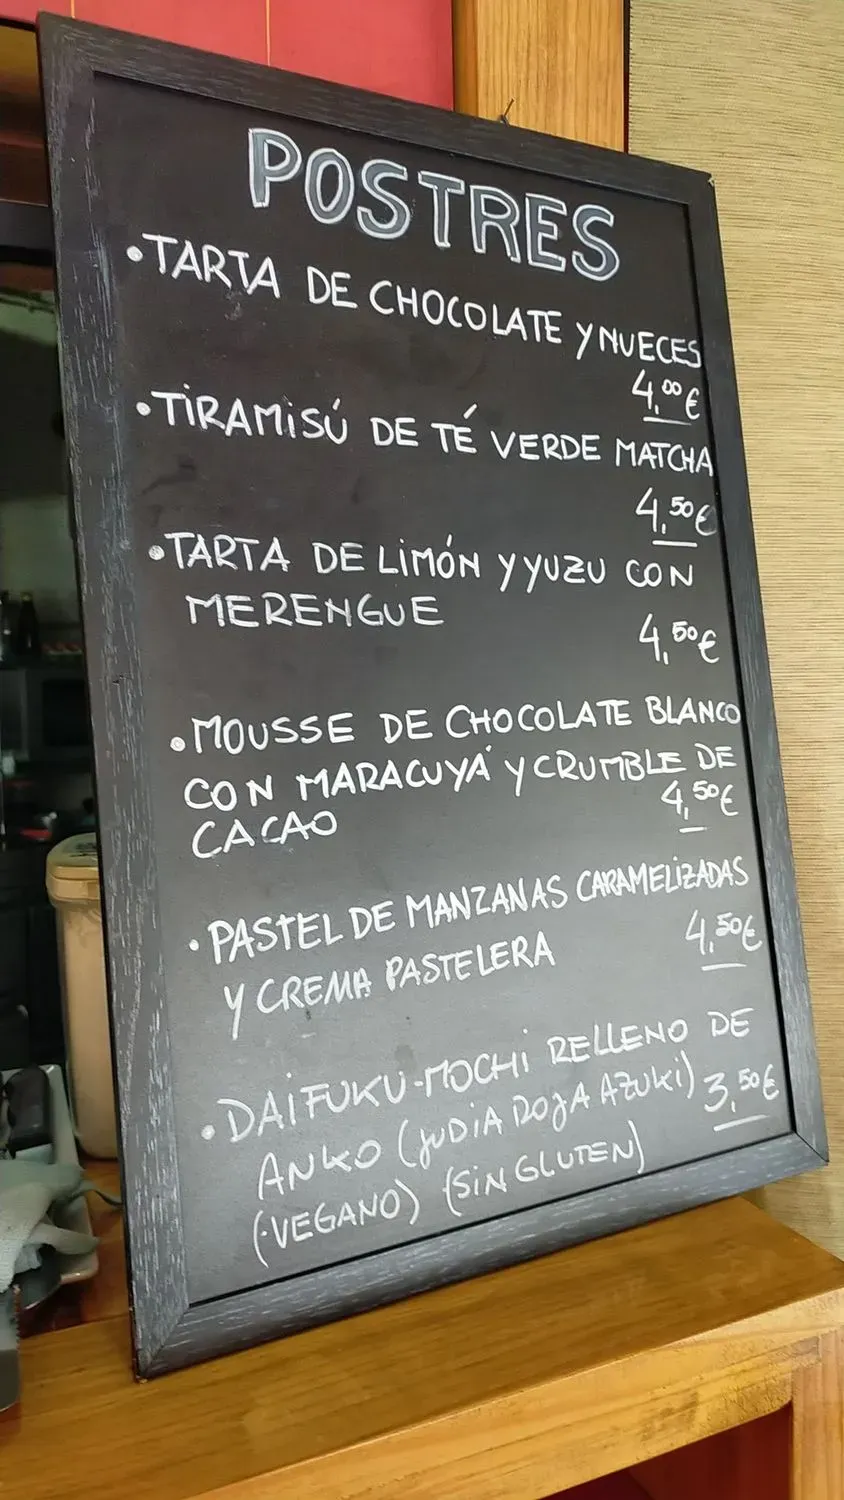 POSTRES
•TARTA DE CHOCOLATE Y NUECES
4,00€
•TIRAMISÚ DE TÉ VERDE MATCHA
4,50€
•TARTA DE LIMÓN Y YUZU CON
MERENGUE
4,50€
•MOUSSE DE CHOCOLATE BLANCO
CON MARACUYÁ Y CRUMBLE DE
CACAO 4,50€
•PASTEL DE MANZANAS CARAMELIZADAS
Y CREMA PASTELERA 4,50€
•DAIFUKU-MOCHI RELLENO DE
ANKO (JUDIA ROJA AZUKI) 3,50€
(VEGANO) (SIN GLUTEN)